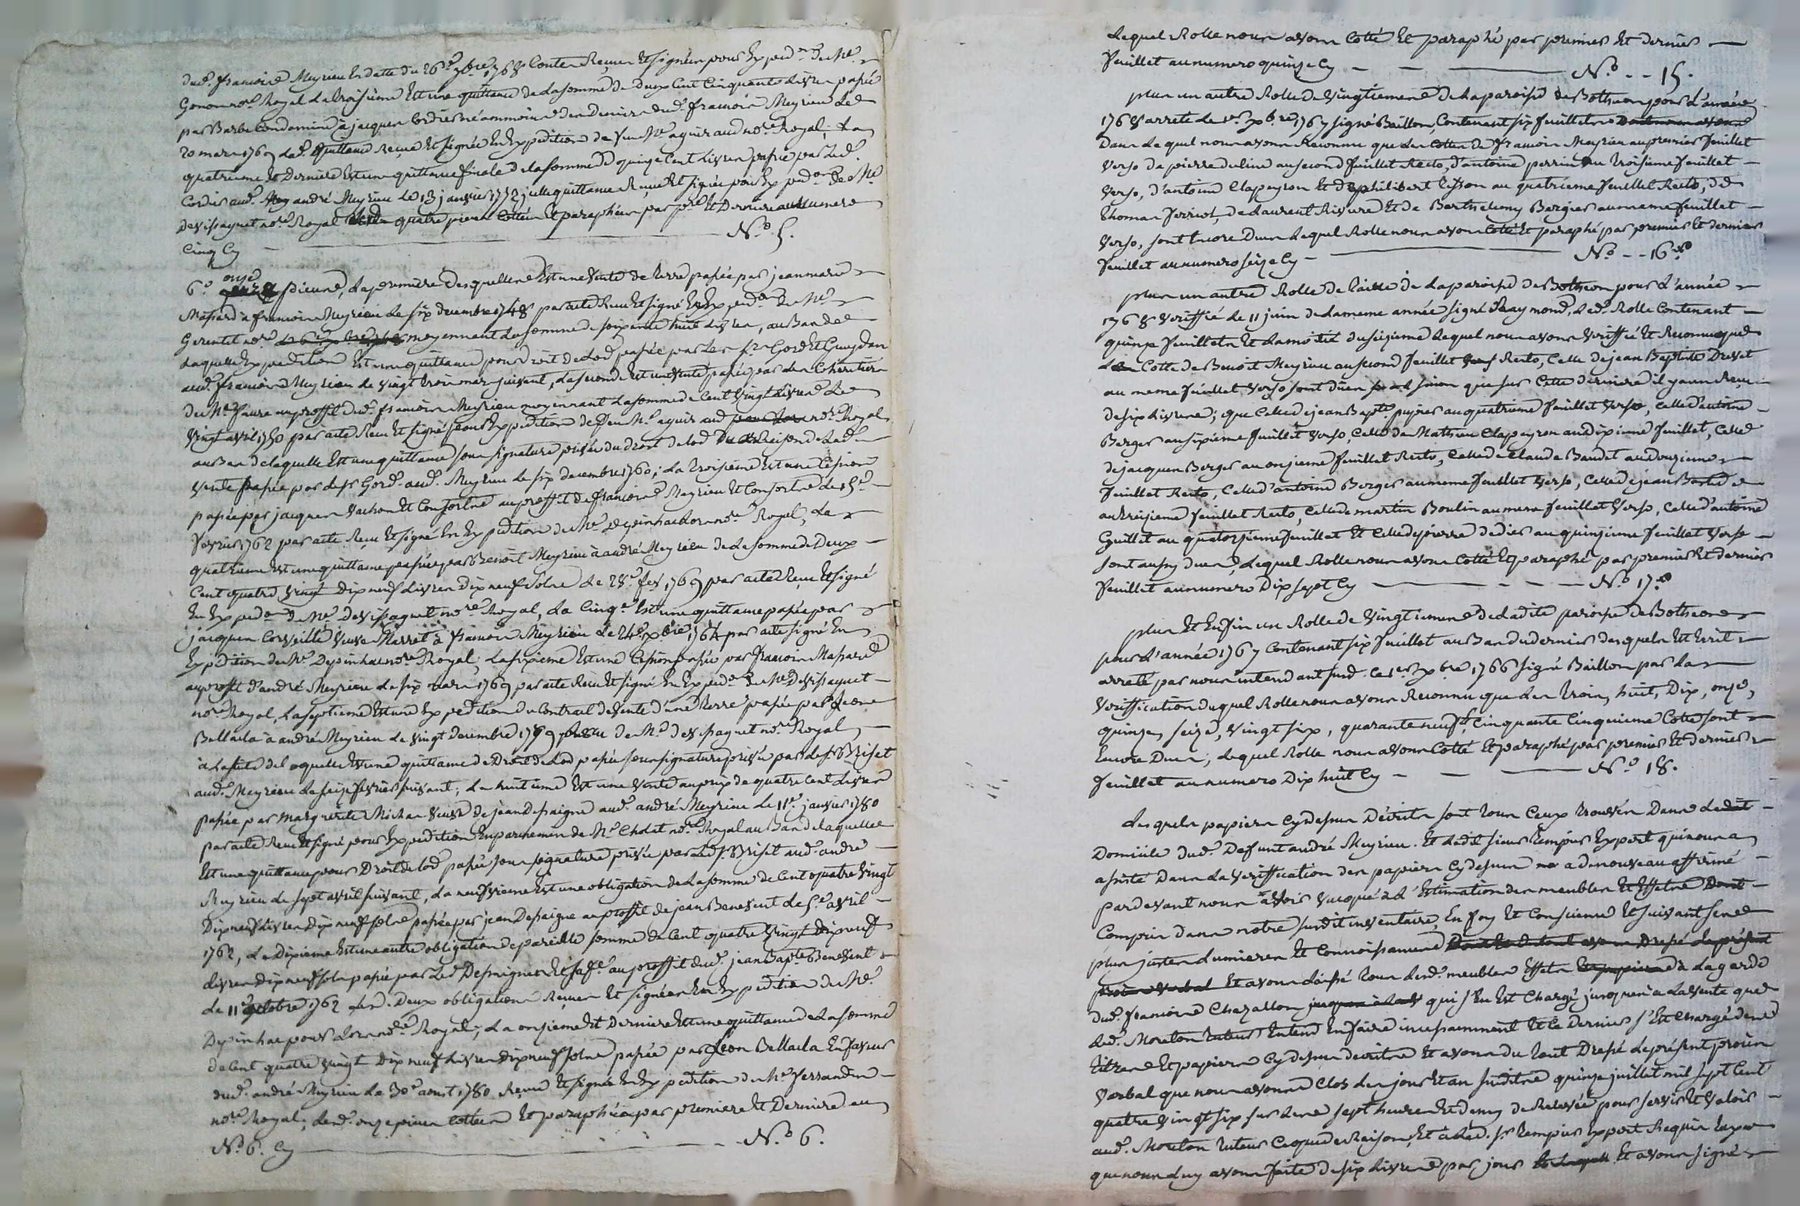 dud. françoise Meyrieu En datte du 26e 7bre 1768 Conten Reçue Et signée pour Expedon de Me
Gonon nore Royal La troisieme Est une quittance de la somme de Deux Cent Cinquante Livres passée
par Barbe Condamine à jacques Cordier
20 mars 1769 lad. quittance Reçue Et signée En Expedition de feu Me aguiraud nore Royal; La
quatrieme Et Derniere Est une quittance finale de la somme de quinze Cent Livres passée par led.
Cordier aud. andré Meyrieu Le 13 janvier 1772 quittance Reçue Et signée pour Expedon de Me
Devissaguet nore Royal quatre pieces Cottées Et paraphées par pre Et Derniere au numero
Cinq Cy N.° 5.
6.° onze pieces, La premiere desquelles Est une Vente de terre passée par jeanmarie
Massard à françoise Meyrieu Le six decembre 1748 par acte Reçu Et signé En Expedon de Me
Gerentet nore moyennant La somme de soixante huit Livres, au Bas de
Laquelle Expedition Est une quittance pour Droit de Lod passée par Les srs Gord Et Guydan
aud. françois Meyrieu Le Vingt trois mars suivant, La seconde Est une Vente passée par
de Me faure au proffit dud. françois Meyrieu moyennant La somme de Cent Vingt Livres Le
Vingt avril 1750 par acte Reçu Et signé pour Expedition de feu Me aguiraud nore Royal
au Bas de laquelle Est une quittance sous signature privée du droit de Lod
Vente passée par de sr Gord aud. Meyrieu Le six decembre 1760; La troisieme Est une Cession
passée par jacques Vachon Et Consorts au proffit de françois Meyrieu Et Consorts Le 5e
fevrier 1762 par acte Reçu Et signé En Expedition de Me Depinhac nore Royal, La
quatrieme Est une quittance passée par Benoit Meyrieu à andré Meyrieu de La somme de Deux
Cent quatre Vingt Dix neuf Livres Dix neuf sols Le 28e fev. 1769 par acte Reçu Et signé
En Expedon de Me Devissaguet nore Royal, La Cinqe Est une quittance passée par
jacques Corveille Veuve à françois Meyrieu Le 24e Xbre 1764 par acte signé En
Expedition de Me Depinhac nore Royal; La sixieme Est une Cession passée par françois Massard
au proffit d'andré Meyrieu Le six mars 1769 par acte Reçu Et signé En Expedon de Me Devissaguet
nore Royal, La septieme Est une Expedition du Contrat de Vente d'une Terre passée par Leone
Ballaila à andré Meyrieu Le Vingt decembre 1779 de Me Devissaguet nore Royal
à La suite de laquelle Est une quittance de Droit de Lod passée sous signature privée par Le sr Briset
aud. Meyrieu Le seize fevrier suivant; La huitieme Est une Vente au prix de quatre Cent Livres
passée par Marguerite Michas Veuve de jean Desaigne aud. andré Meyrieu Le 11e janvier 1780
par acte Reçu Et signé pour Expedition En parchemin de Me Cholat nore Royal au Bas de laquelle
Est une quittance pour Droit de Lod passée sous signature privée par led. sr Briset aud. andré
Meyrieu Le sept avril suivant, La neufvieme Est une obligation de La somme de Cent quatre Vingt
Dix neuf Livres Dix neuf sols passée par jean Desaigne au proffit de jean Benevent Le 5e avril
1762, La Dixieme Est une autre obligation de pareille somme de Cent quatre Vingt Dix neuf
Livres Dix neuf sols passée par Led. Desaigne Et sa fe au proffit dud. jean Bapte Benevent
Le 11e octobre 1762 Lesd. Deux obligations Reçues Et signées En Expedition de Me
Depinhac pour Lors nore Royal; La onzieme Et Derniere Est une quittance de La somme
de Cent quatre Vingt Dix neuf Livres Dix neuf sols passée par Leon Ballaila En faveur
dud. andré Meyrieu Le 30e aoust 1780 Reçue Et signée En Expedition de Me Ferrandin
nore Royal; Lesd. onze pieces Cottées Et paraphées par premiere Et Derniere au
N.° 6. Cy N.° 6.
Lequel Rolle nous avons Cotté Et paraphé par premier Et dernier
feuillet au numero quinze Cy N.° 15.
plus un autre Rolle de Vingtiemes de La paroisse de Botheon pour L'année
1768 arreté le 1er Xbre 1767 signé Baillon, Contenant six feuillets
Dans Lequel nous avons Reconnu que Les Cottes de françois Meyrieu au premier feuillet
Verso de pierre deline au second feuillet Recto, d'antoine perrin au troisieme feuillet
Verso, d'antoine Clapeyron Et de philibert Cisson au quatrieme feuillet Recto, de
Thomas ferriot, de Laurent Riviere Et de Barthelemy Berger au meme feuillet
Verso, sont Encore Dues Lequel Rolle nous avons Cotté Et paraphé par premier Et dernier
feuillet au numero seize Cy N.° 16.
plus un autre Rolle de Taille de La paroisse de Botheon pour L'année
1768 Veriffié Le 11 juin de La meme année signé Raymond, Led. Rolle Contenant
quinze feuillets Et La moitié du seizieme Lequel nous avons Veriffié Et Reconnu que
La Cotte de Benoit Meyrieu au second feuillet Recto, Celle de jean Baptiste Drevet
au meme feuillet Verso sont dues sinon que sur Cette derniere il y a un Reçu
de six Livres; que Celle de jean Bapte pugnet au quatrieme feuillet Verso, Celle d'antoine
Berger au sixieme feuillet Verso, Celle de Mathieu Clapeyron au dixieme feuillet, Celle
de jacques Berger au onzieme feuillet Recto, Celle de Claude Baudet au douzieme
feuillet Recto, Celle d'antoine Berger au meme feuillet Verso, Celle de jean
au treizieme feuillet Recto, Celle de martin Boulin au meme feuillet Verso, Celle d'antoine
Guillet au quatorzieme feuillet Et Celle de pierre dedier au quinzieme feuillet Verso
sont aussy dues, Lequel Rolle nous avons Cotté Et paraphé par premier Et dernier
feuillet au numero Dix sept Cy N.° 17.
plus Et Enfin un Rolle de Vingtieme de Ladite paroisse de Botheon
pour L'année 1767 Contenant six feuillet au Bas du dernier desquels Est Ecrit
arreté par nous intendant susd. Ce 1er Xbre 1766 signé Baillon par La
Veriffication duquel Rolle nous avons Reconnu que Les Trois, huit, Dix, onze,
quinze, seize, Vingt six, quarante neuf, Cinquante Cinquieme Cottes sont
Encore Dues, Lequel Rolle nous avons Cotté Et paraphé par premier Et dernier
feuillet au numero Dix huit Cy N.° 18.
Lesquels papiers Cy dessus Décrits sont tous Ceux trouvés Dans Ledit
Domicile dud. Deffunt andré Meyrieu. Et Ledit sieur Rempier Expert qui nous a
assisté Dans La Veriffication des papiers Cy dessus a de nouveau affirmé
par devant nous avoir Vaqué à L'Estimation des meubles Et Effets
Compris dans notre susdit inventaire, En foy Et Conscience Et suivant ses
plus justes Lumieres Et Connoissances Dont Et de tout avons Dressé le présent
procès Verbal Et avons Laissé tous Lesd. meubles Effets à La garde
dud. françois Chazallon qui s'En Est Chargé jusques à La Vente que
Led. Moulon tuteur Entend En faire incessamment Et Ce Dernier s'Est Chargé des
Titres Et papiers Cy dessus décrits Et avons du tout Dressé Le present procès
Verbal que nous avons Clos Les jour Et an susdits quinze juillet mil sept Cent
quatre Vingt six sur Les sept heures Et demy de Relevée pour servir Et Valoir
aud. Moulon tuteur Ce que de Raison, Et à Led. sr Rempier Expert Requis Taxe
que nous Luy avons faite de six Livres par jour Et avons signé